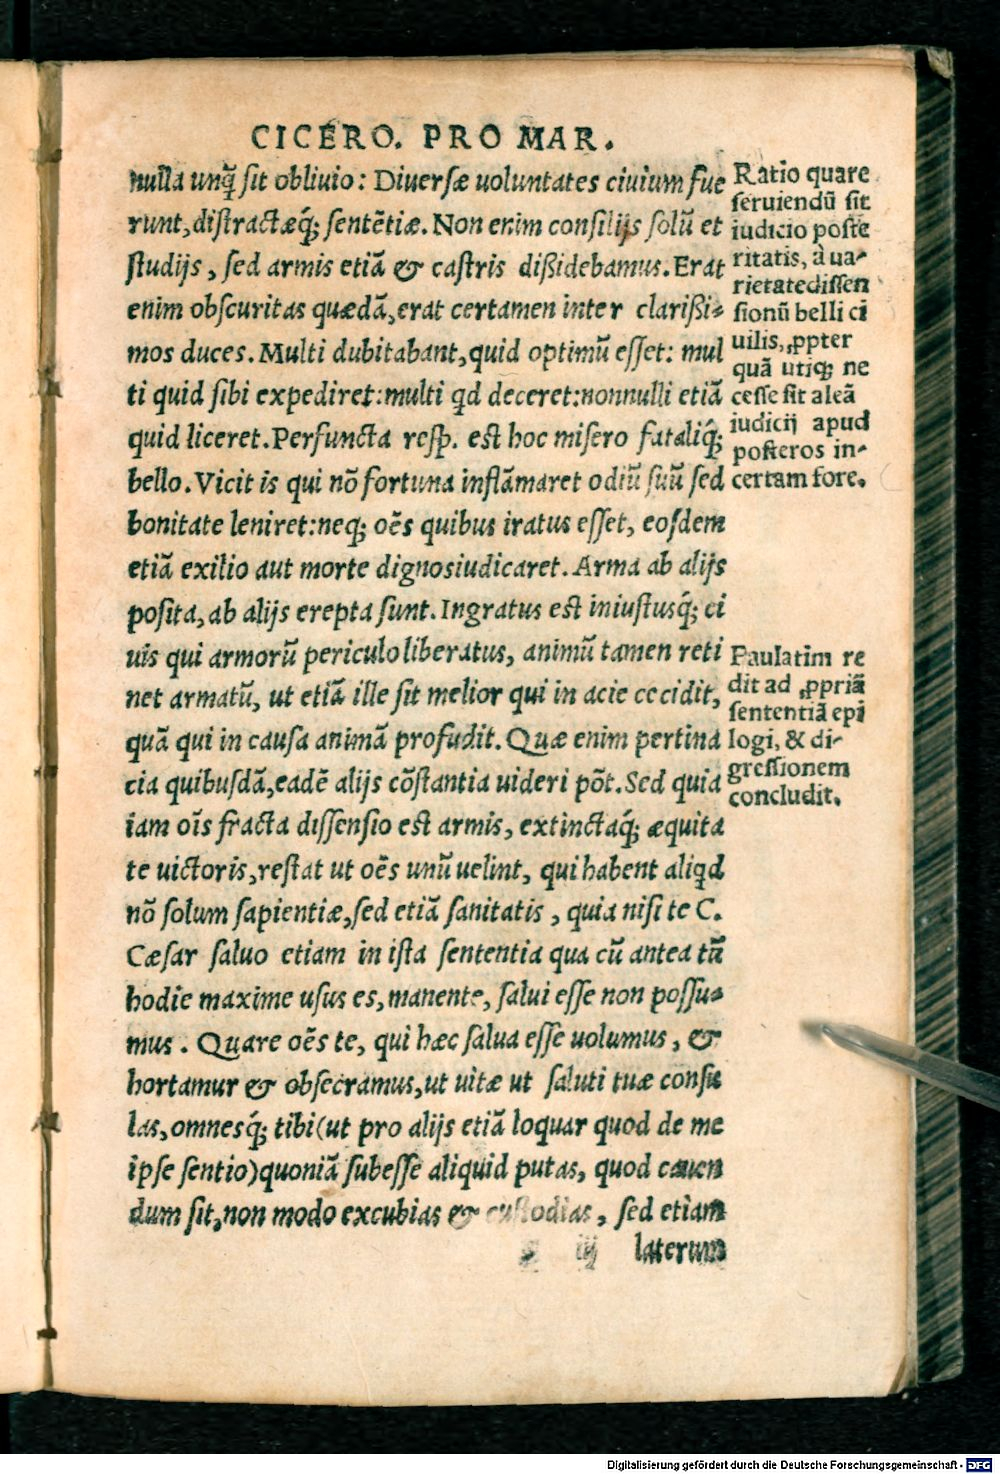 CICERO. PRO MAR.
nulla unq̃ sit obliuio: Diuersæ uoluntates ciuium fue
runt, distractæq́; sentẽtiæ. Non enim consilijs solũ et
studijs, sed armis etiã & castris dißidebamus. Erat
enim obscuritas quædã, erat certamen inter clarißi-
mos duces. Multi dubitabant, quid optimũ esset: mul
ti quid sibi expediret: multi qd deceret: nonnulli etiã
quid liceret. Perfuncta resp. est hoc misero fataliq́;
bello. Vicit is qui nõ fortuna inflãmaret odiũ suũ sed
bonitate leniret: neq; oẽs quibus iratus esset, eosdem
etiã exilio aut morte dignos iudicaret. Arma ab alijs
posita, ab alijs erepta sunt. Ingratus est iniustusq́; ci
uis qui armorũ periculo liberatus, animũ tamen reti
net armatũ, ut etiã ille sit melior qui in acie cecidit,
quã qui in causa animã profudit. Quæ enim pertina
cia quibusdã, eadẽ alijs cõstantia uideri põt. Sed quia
iam oĩs fracta dissensio est armis, extinctaq́; æquita
te uictoris, restat ut oẽs unũ uelint, qui habent aliqd
nõ solum sapientiæ, sed etiã sanitatis, quia nisi te C.
Cæsar saluo etiam in ista sententia qua cũ antea tũ
hodie maxime usus es, manente, salui esse non possu-
mus. Quare oẽs te, qui hæc salua esse uolumus, &
hortamur & obsecramus, ut uitæ ut saluti tuæ consu
las, omnesq́; tibi (ut pro alijs etiã loquar quod de me
ipse sentio) quoniã subesse aliquid putas, quod cauen
dum sit, non modo excubias & custodias, sed etiam
iij laterum
Ratio quare
seruiendũ sit
iudicio poste
ritatis, à ua-
rietate dissen
sionũ belli ci
uilis, ꝓpter
quã utiq; ne
cesse sit aleã
iudicij apud
posteros in-
certam fore.
Paulatim re
dit ad ꝓpriã
sententiã epi
logi, & di-
gressionem
concludit.
Digitalisierung gefördert durch die Deutsche Forschungsgemeinschaft - DFG